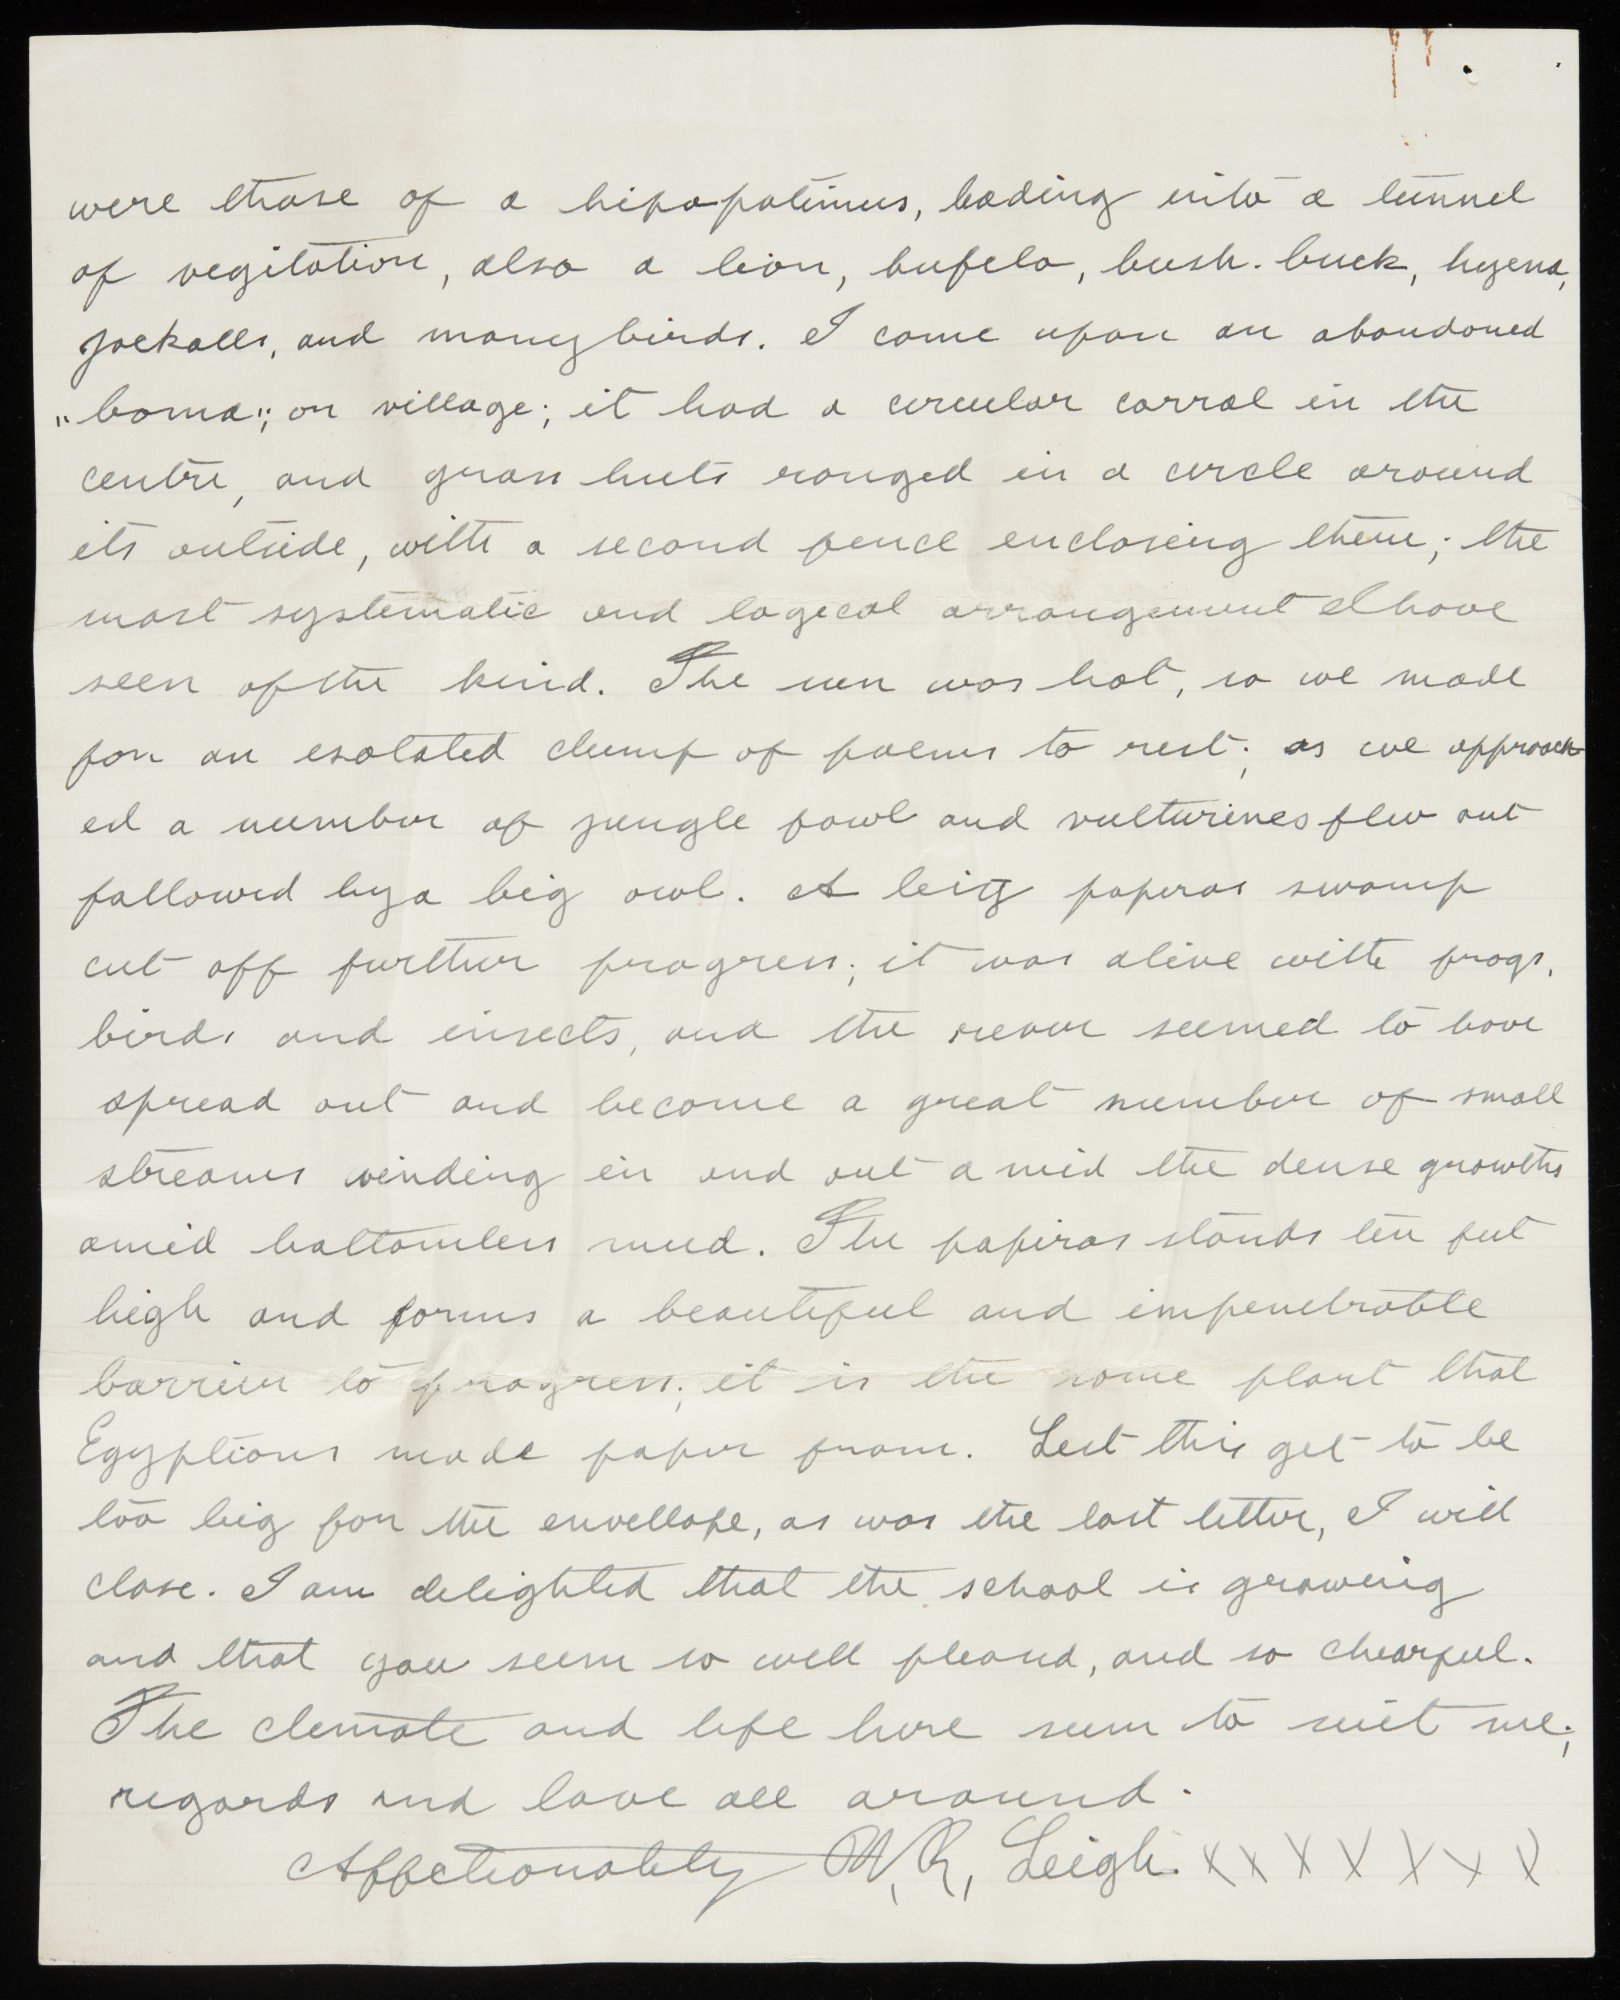 were those of a hipopotimus, leading into a tunnel
of vegitation, also a lion, bufelo, bush-buck, hyena,
jackalls, and many birds. I came upon an abandoned
"boma", or village; it had a circular corral in the
centre, and grass huts ranged in a circle around
its outside, with a second fence enclosing them; the
most systematic and logical arrangement I have
seen of the kind. The sun was hot, so we made
for an isolated clump of palms to rest; as we approach
ed a number of jungle fowl and vulturines flew out
followed by a big owl. A big papiras swamp
cut off further progress; it was alive with frogs,
birds and insects, and the river seemed to have
spread out and become a great number of small
streams winding in and out amid the dense growths
amid bottomless mud. The papiras stands ten feet
high and forms a beautiful and impenetrable
barrier to progress; it is the same plant that
Egyptians made paper from. Lest this get to be
too big for the envellope, as was the last letter, I will
close. I am delighted that the school is growing
and that you seem so well pleased, and so chearful.
The climate and life here seem to suit me;
regards and love all around.
Affectionately W. R. Leigh. x x x x x x x